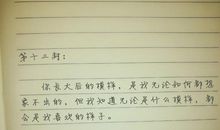 第十二封：
你长大后的模样，是我无论如何都想
象不出的，但我知道无论是什么模样，都
会是我喜欢的样子。